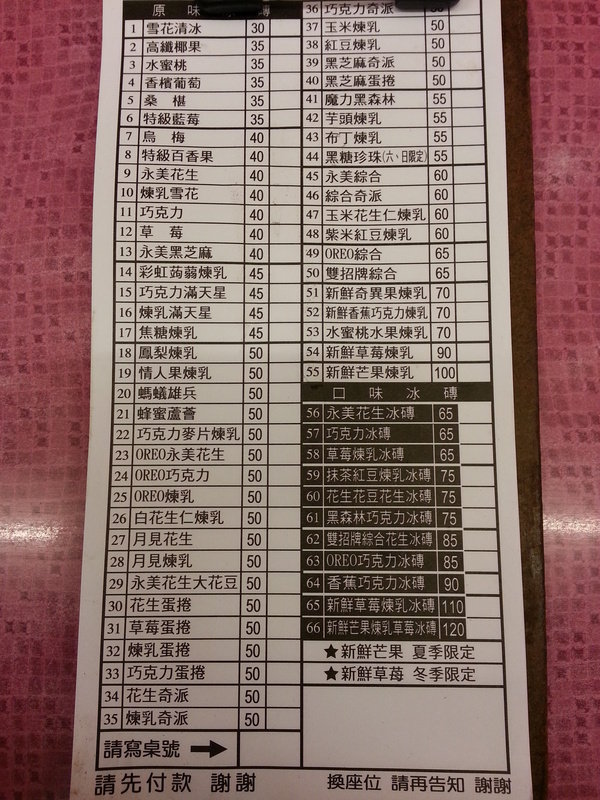 原 味 磚
1 雪花清冰 30
2 高纖椰果 35
3 水蜜桃 35
4 香檳葡萄 35
5 桑 椹 35
6 特級藍莓 35
7 烏 梅 40
8 特級百香果 40
9 永美花生 40
10 煉乳雪花 40
11 巧克力 40
12 草 莓 40
13 永美黑芝麻 40
14 彩虹蒟蒻煉乳 45
15 巧克力滿天星 45
16 煉乳滿天星 45
17 焦糖煉乳 45
18 鳳梨煉乳 50
19 情人果煉乳 50
20 螞蟻雄兵 50
21 蜂蜜蘆薈 50
22 巧克力麥片煉乳 50
23 OREO永美花生 50
24 OREO巧克力 50
25 OREO煉乳 50
26 白花生仁煉乳 50
27 月見花生 50
28 月見煉乳 50
29 永美花生大花豆 50
30 花生蛋捲 50
31 草莓蛋捲 50
32 煉乳蛋捲 50
33 巧克力蛋捲 50
34 花生奇派 50
35 煉乳奇派 50
請寫桌號 →
請先付款 謝謝
36 巧克力奇派 50
37 玉米煉乳 50
38 紅豆煉乳 50
39 黑芝麻奇派 50
40 黑芝麻蛋捲 50
41 魔力黑森林 55
42 芋頭煉乳 55
43 布丁煉乳 55
44 黑糖珍珠(六、日限定) 55
45 永美綜合 60
46 綜合奇派 60
47 玉米花生仁煉乳 60
48 紫米紅豆煉乳 60
49 OREO綜合 65
50 雙招牌綜合 65
51 新鮮奇異果煉乳 70
52 新鮮香蕉巧克力煉乳 70
53 水蜜桃水果煉乳 70
54 新鮮草莓煉乳 90
55 新鮮芒果煉乳 100
口 味 冰 磚
56 永美花生冰磚 65
57 巧克力冰磚 65
58 草莓煉乳冰磚 65
59 抹茶紅豆煉乳冰磚 75
60 花生花豆花生冰磚 75
61 黑森林巧克力冰磚 75
62 雙招牌綜合花生冰磚 85
63 OREO巧克力冰磚 85
64 香蕉巧克力冰磚 90
65 新鮮草莓煉乳冰磚 110
66 新鮮芒果煉乳草莓冰磚 120
★新鮮芒果 夏季限定
★新鮮草莓 冬季限定
換座位 請再告知 謝謝